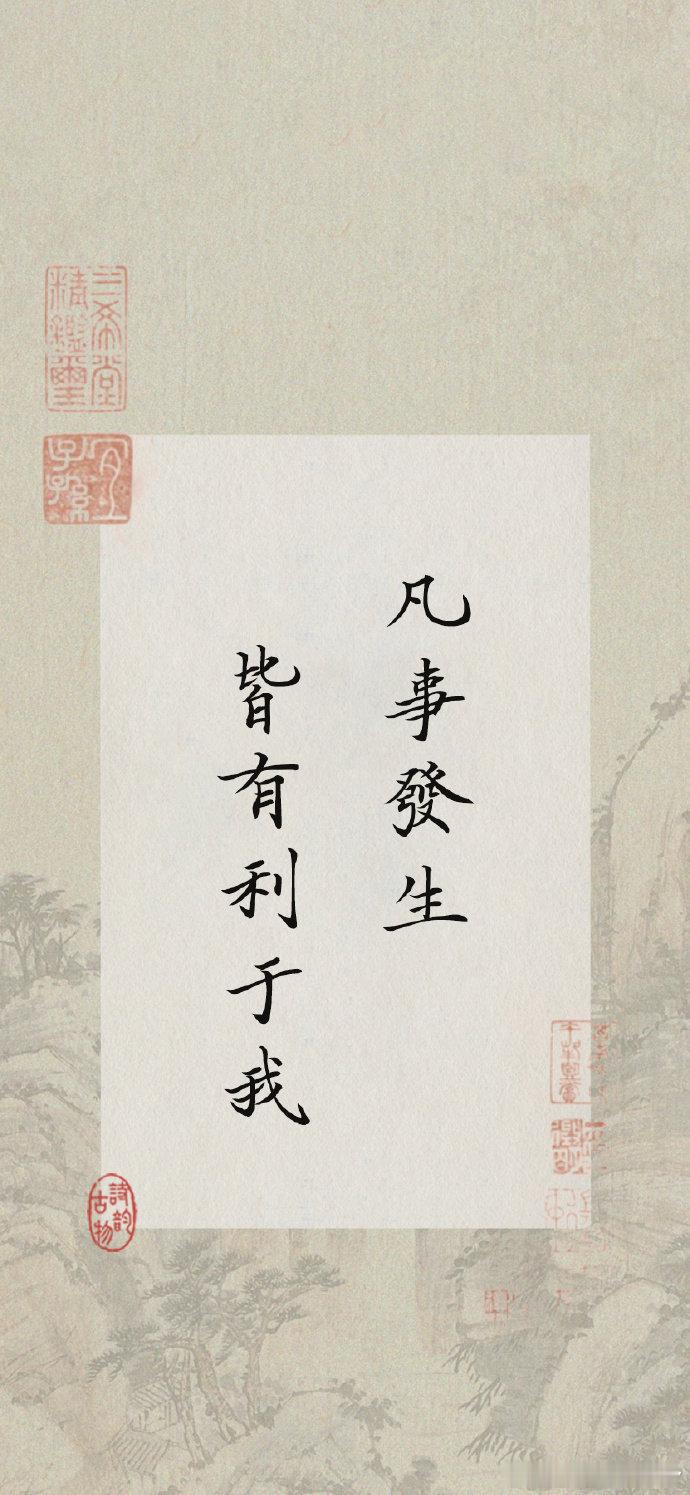 凡事發生
皆有利于我
三希堂
精鑑璽
宜
子孫
詩韵
古物